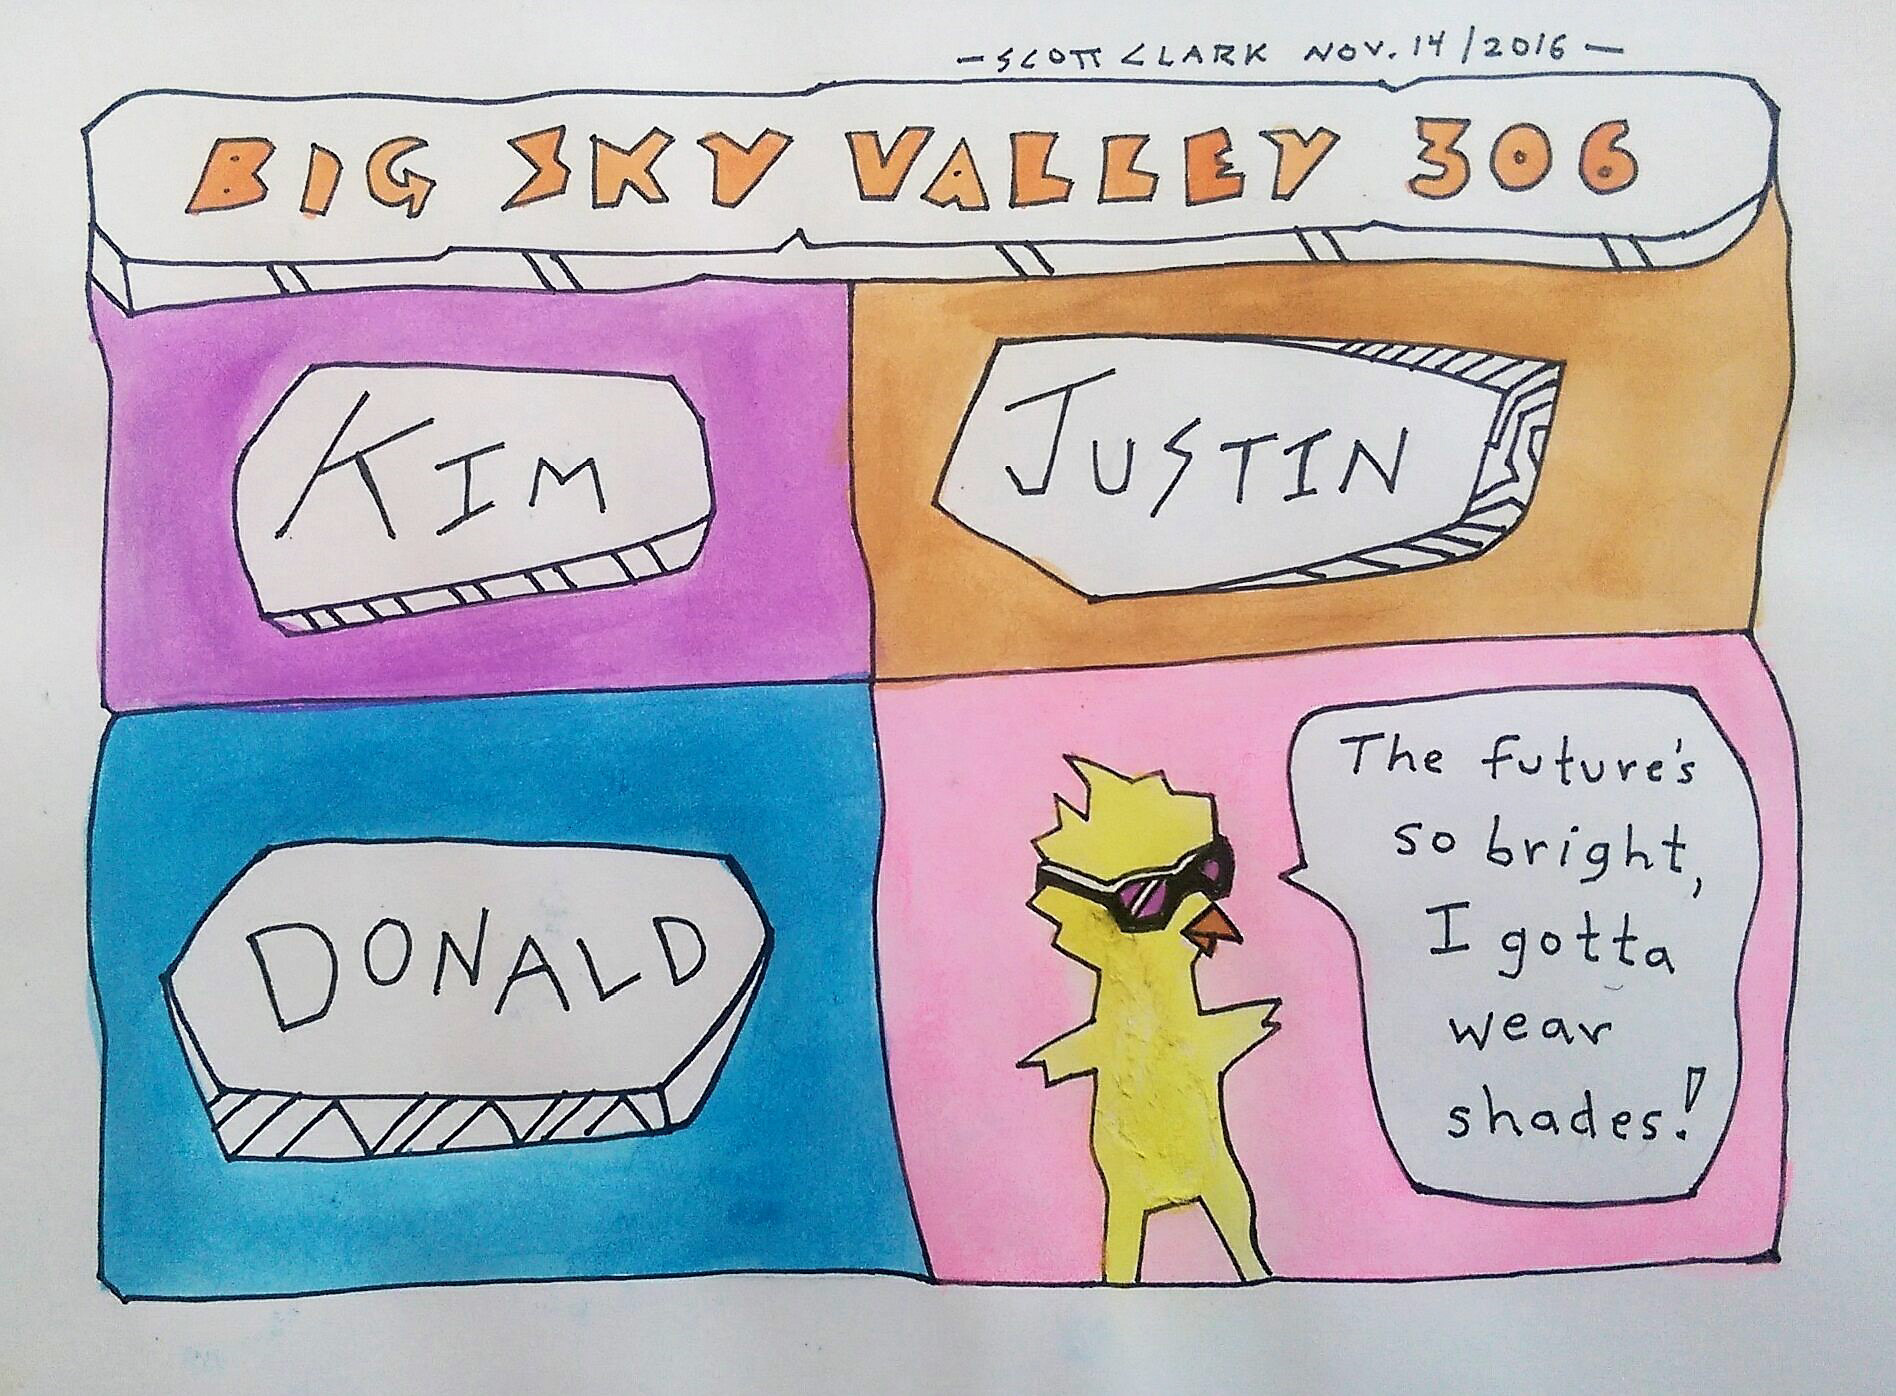 -SCOTT CLARK NOV. 14/2016-
BIG SKY VALLEY 306
KIM
JUSTIN
DONALD
The future's
so bright,
I gotta
wear
shades!